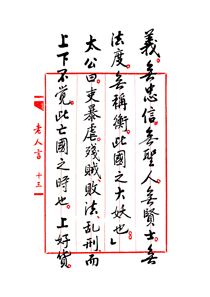 義。無忠信。無聖人。無賢士。無
法度。無稱衡。此國之大妖也」
太公曰吏暴虐殘賊。敗法。亂刑。而
上下不覺。此亡國之時也。上好貨。
老人言 十三